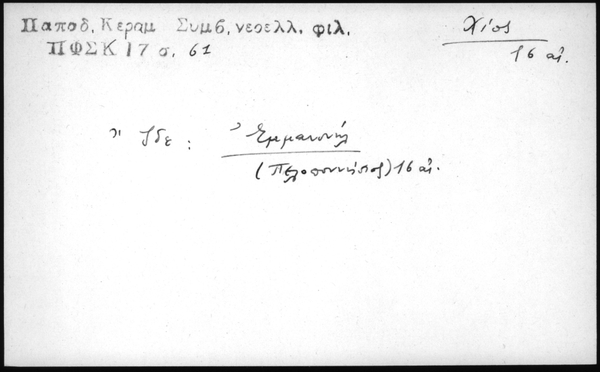 Παποδ, Κεραμ Συμβ, νεοελλ. φιλ.
ΠΦΣΚ 17 σ. 61
Χίος
16 αἰ.
Ἴδε : Ἐμμανουήλ
(Πελοποννήσιος) 16 αἰ.